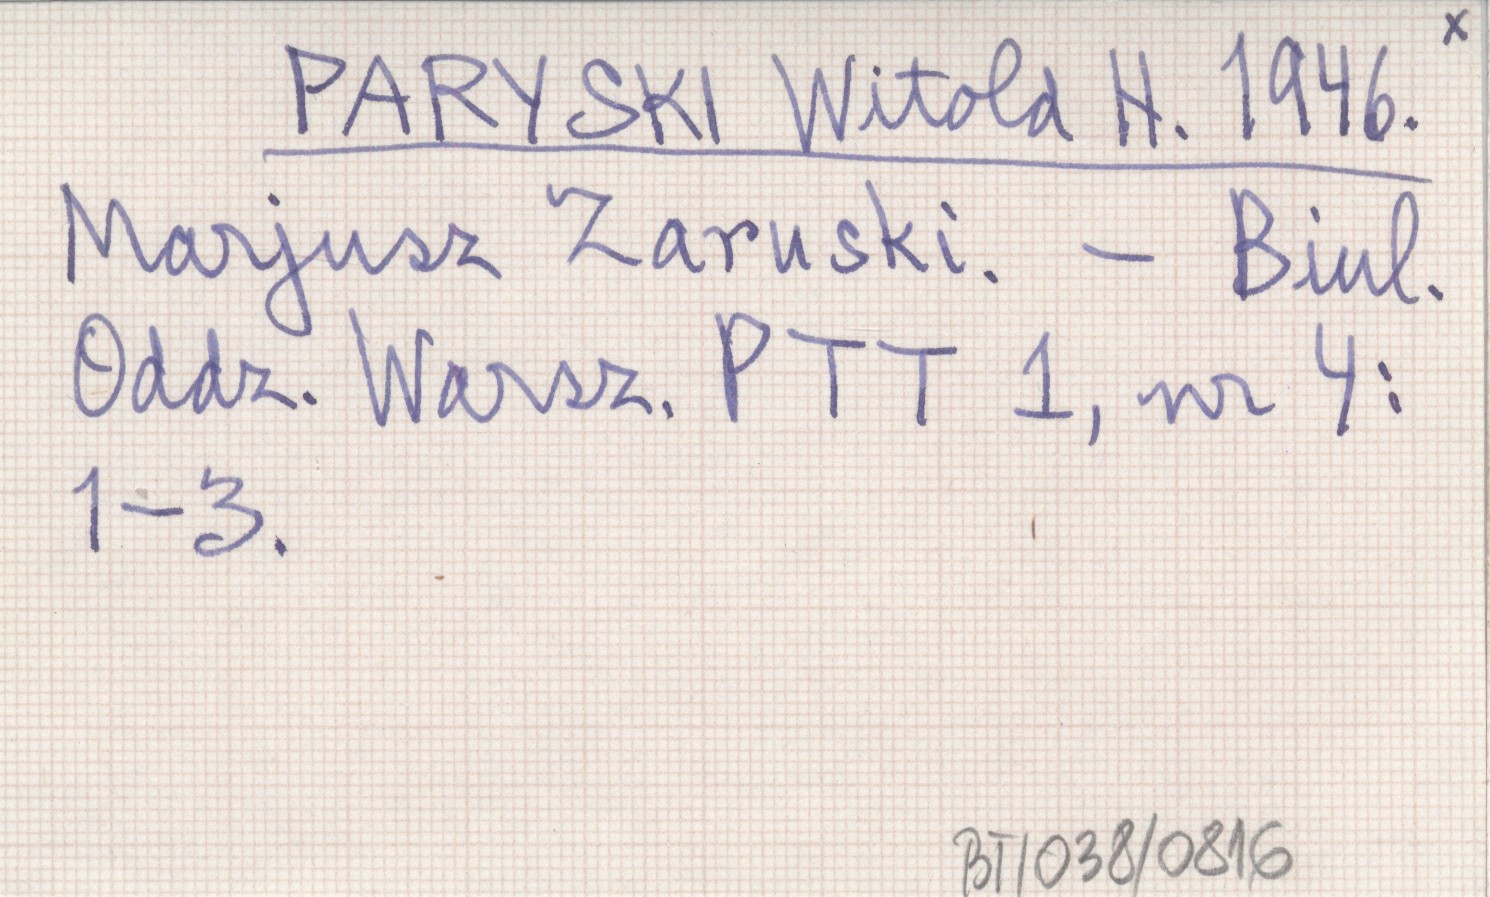 x
PARYSKI Witold H. 1946.
Marjusz Zaruski. – Biul.
Oddz. Warsz. PTT 1, nr 4:
1–3.
BT/038/0816